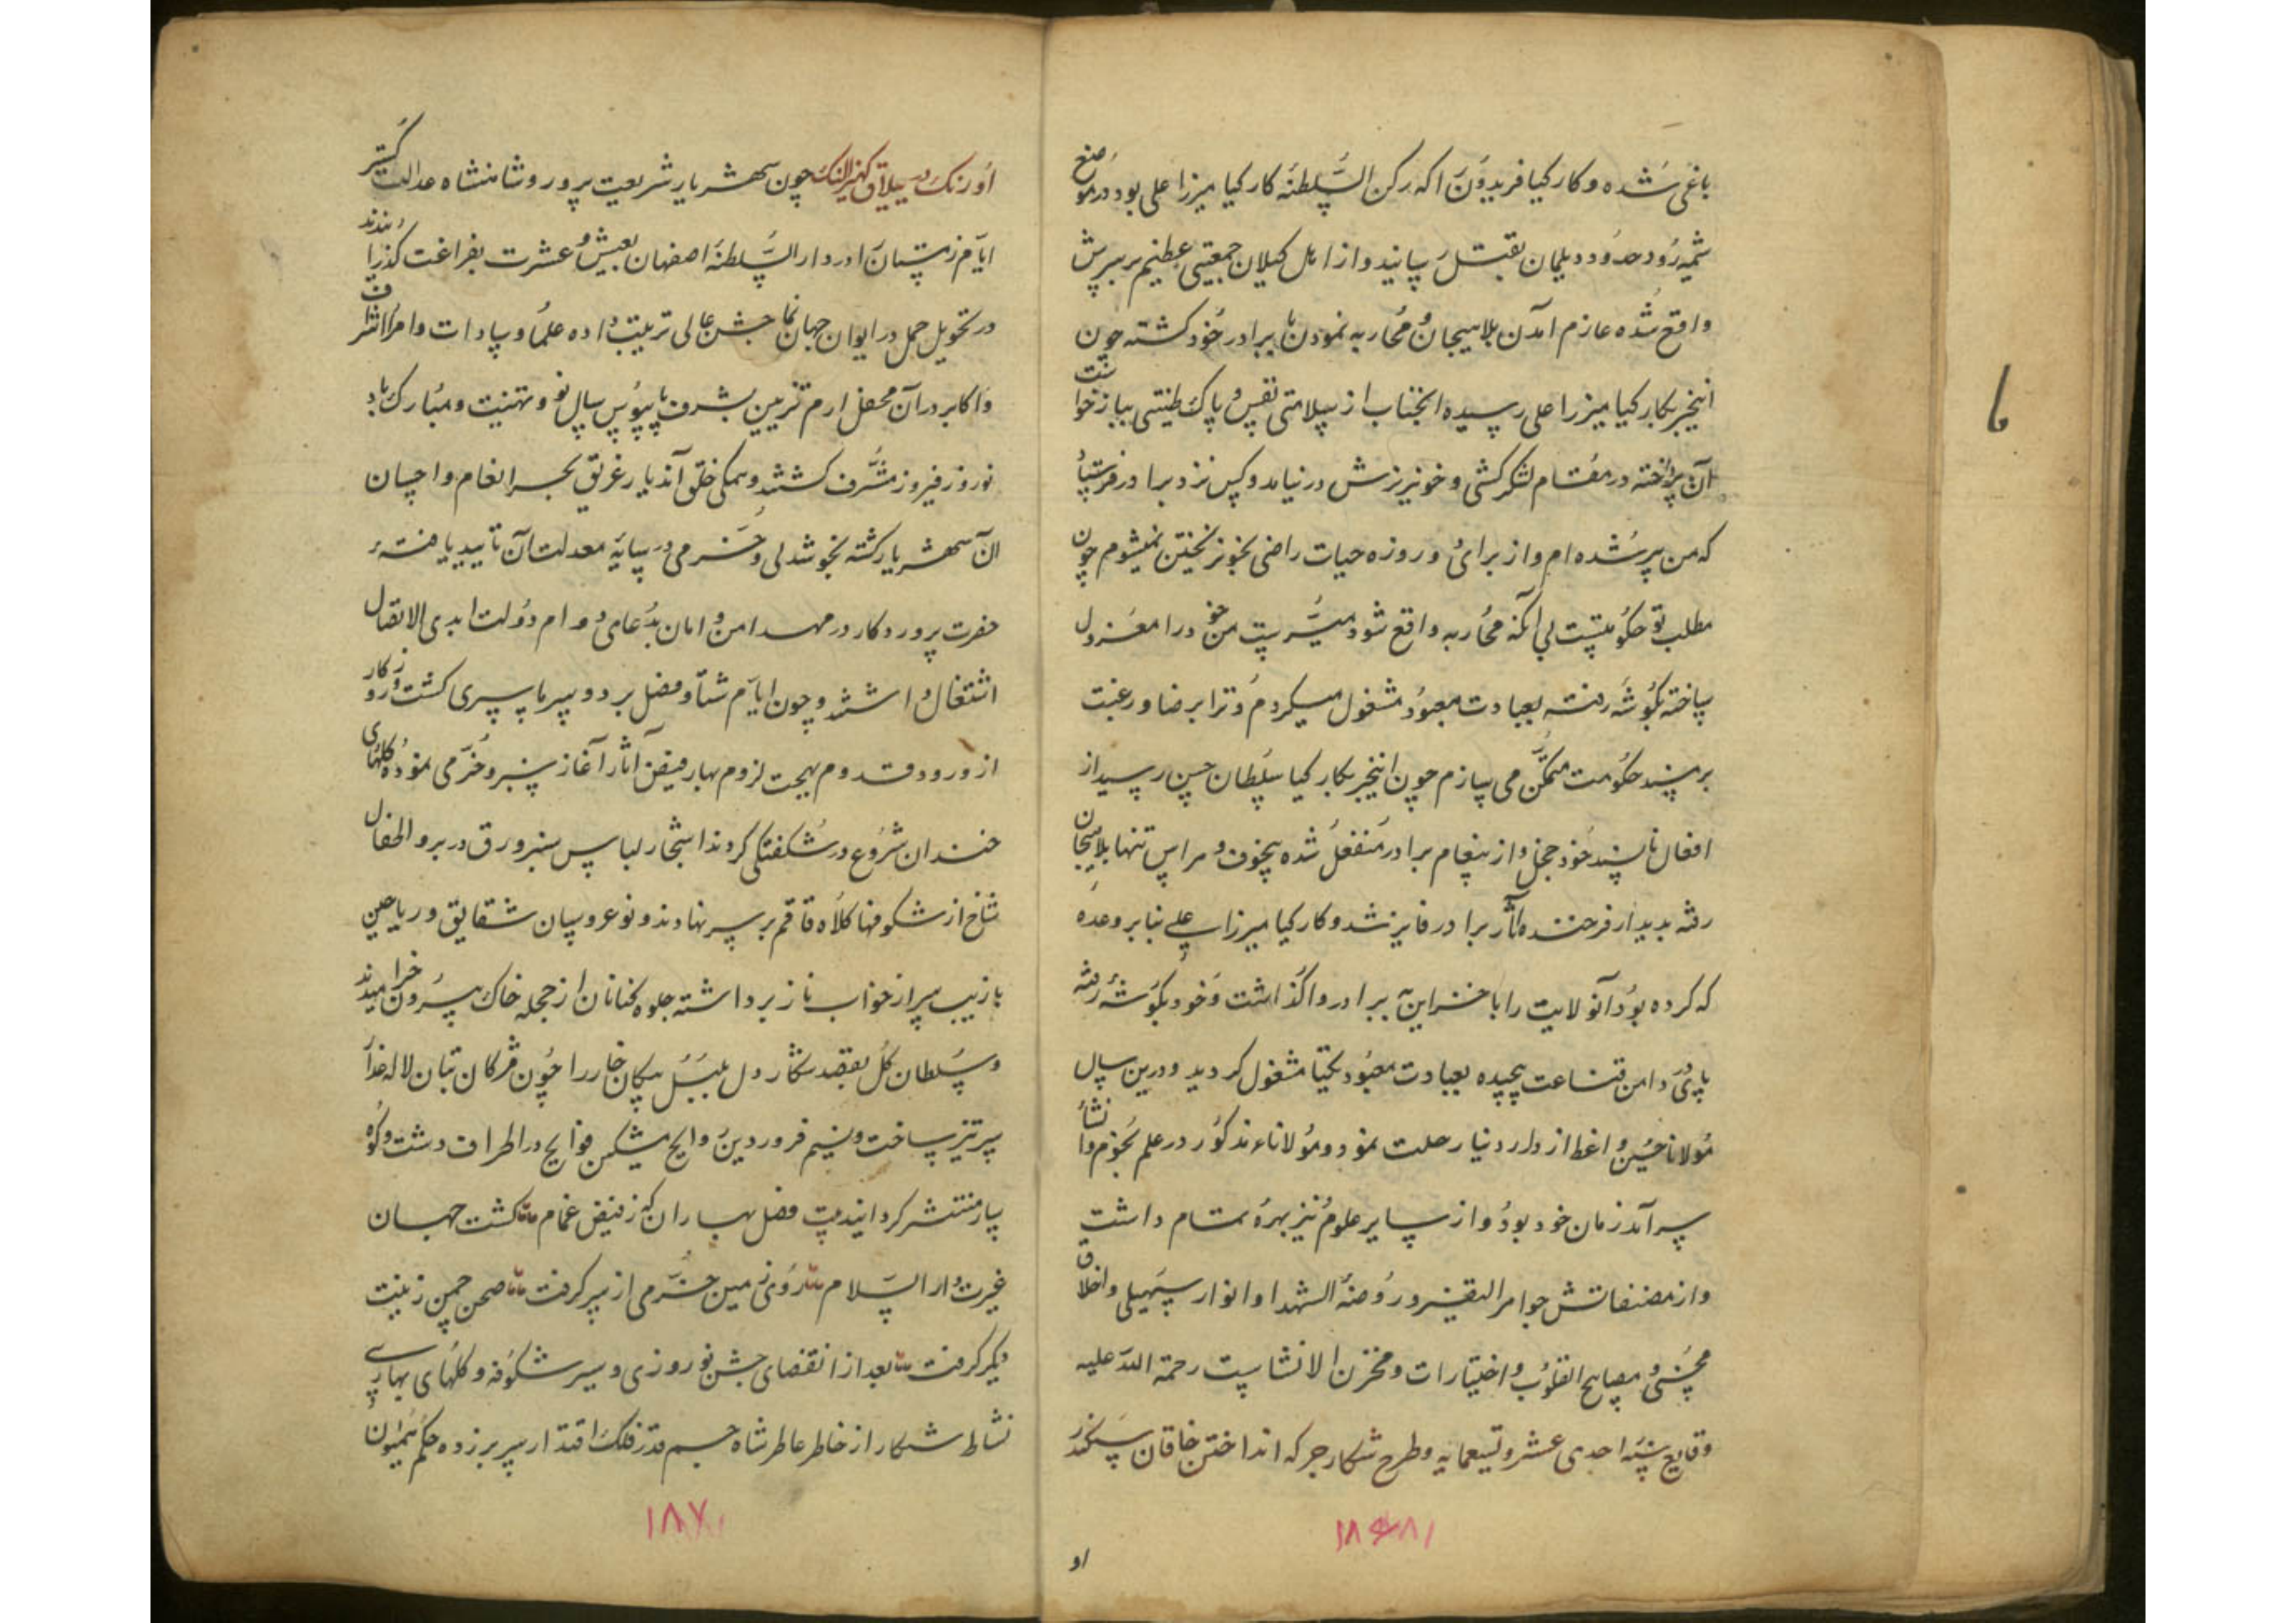 باغی شده و کارکیا فریدون را که رکن السلطنه کارکیا میرزا علی بود در موضع
شمیرود حدود دیلمان بقتل رسانید و از اهل کیلان جمعیتی عظیم بر سرش
واقع شده عازم آمدن بلاهیجان و محاربه نمودن با برادر خود کشته چون
اینخبر بکارکیا میرزا علی رسیده آنجناب از سلامتی نفس و پاک طینتی بباز خواست
آن پرداخته در مقام لشکرکشی و خونریزش در نیامد و کس نزد برادر فرستاد
که من پیر شده ام و از برای دو روزه حیات راضی بخونریختن نمیشوم چون
مطلب تو حکومتست بی آنکه محاربه واقع شود میسر است من خود را معزول
ساخته بکوشه رفته بعبادت معبود مشغول میکردم و ترا برضا و رغبت
بر مسند حکومت متمکن می سازم چون اینخبر بکارکیا سلطان حسن رسید از
افعال ناپسند خود خجل و از پیغام برادر منفعل شده بیخوف و هراس تنها بلاهیجان
رفته بدیدار فرخنده آثار برادر فایز شد و کارکیا میرزا علی بنا بر وعده
که کرده بود آنولایت را با خزاین ببرادر واکذاشت و خود بکوشه رفته
پای در دامن قناعت پیچیده بعبادت معبود یکتا مشغول کردید و درین سال
مولانا حسین واعظ از دار دنیا رحلت نمود و مولاناء مذکور در علم نجوم و انشاء
سرآمد زمان خود بود و از سایر علوم نیز بهره تمام داشت
و از مصنفاتش جواهر التفسیر و روضة الشهدا و انوار سهیلی و اخلاق
محسنی و مصابیح القلوب و اختیارات و مخزن الانشاست رحمة الله علیه
وقایع سنه احدی عشر و تسعمایه و طرح شکار جرکه انداختن خاقان سکندر
۱۸۶
او
اورنک در ییلاق کهیز النک چون شهریار شریعت پرور و شاهنشاه عدالت کستر
ایام زمستان را در دار السلطنه اصفهان بعیش و عشرت بفراغت کذرانیدند
در تحویل حمل در ایوان جهان نما جشن عالی ترتیب داده علما و سادات و امرا و اشراف
و اکابر در آن محفل ارم تزیین بشرف پایبوس سال نو و تهنیت و مبارک باد
نوروز فیروز مشرف کشتند و همکی خلق آندیار غریق بحر انعام و احسان
آن شهریار کشته بخوشدلی و خرمی در سایه معدلت آن تایید یافته
حضرت پروردکار در مهد امن و امان بدعای دوام دولت ابدی الاتصال
اشتغال داشتند و چون ایام شتا و فصل برد و سرما بسپری کشت و روزکار
از ورود قدوم بهجت لزوم بهار فیض آثار آغاز سبز و خرمی نموده کلهای
خندان شروع در شکفتکی کردند اشجار لباس سبز ورق در بر و اطفال
شاخ از شکوفها کلاه قاقم بر سر نهادند و نو عروسان شقایق و ریاحین
بازیب سر از خواب ناز برداشته جلوه کنانان از حجله خاک بیرون خرامیدند
و سلطان کل بقصد شکار دل بلبل پیکان خار را چون مژکان بتان لاله عذار
سر تیز ساخت و نسیم فروردین روایح مشکین فوایح در اطراف دشت و کوه
سار منتشر کردانید بیت فصل بهاران که ز فیض غمام کشت جهان
غیرت دار السلام روی زمین خرمی از سر کرفت صحن چمن زینت
دیکر کرفت بعد از انقضای جشن نوروزی و سیر شکوفه و کلهای بهاری
نشاط شکار از خاطر عاطر شاه جم قدر فلک اقتدار سر بر زده حکم همایون
۱۸۷